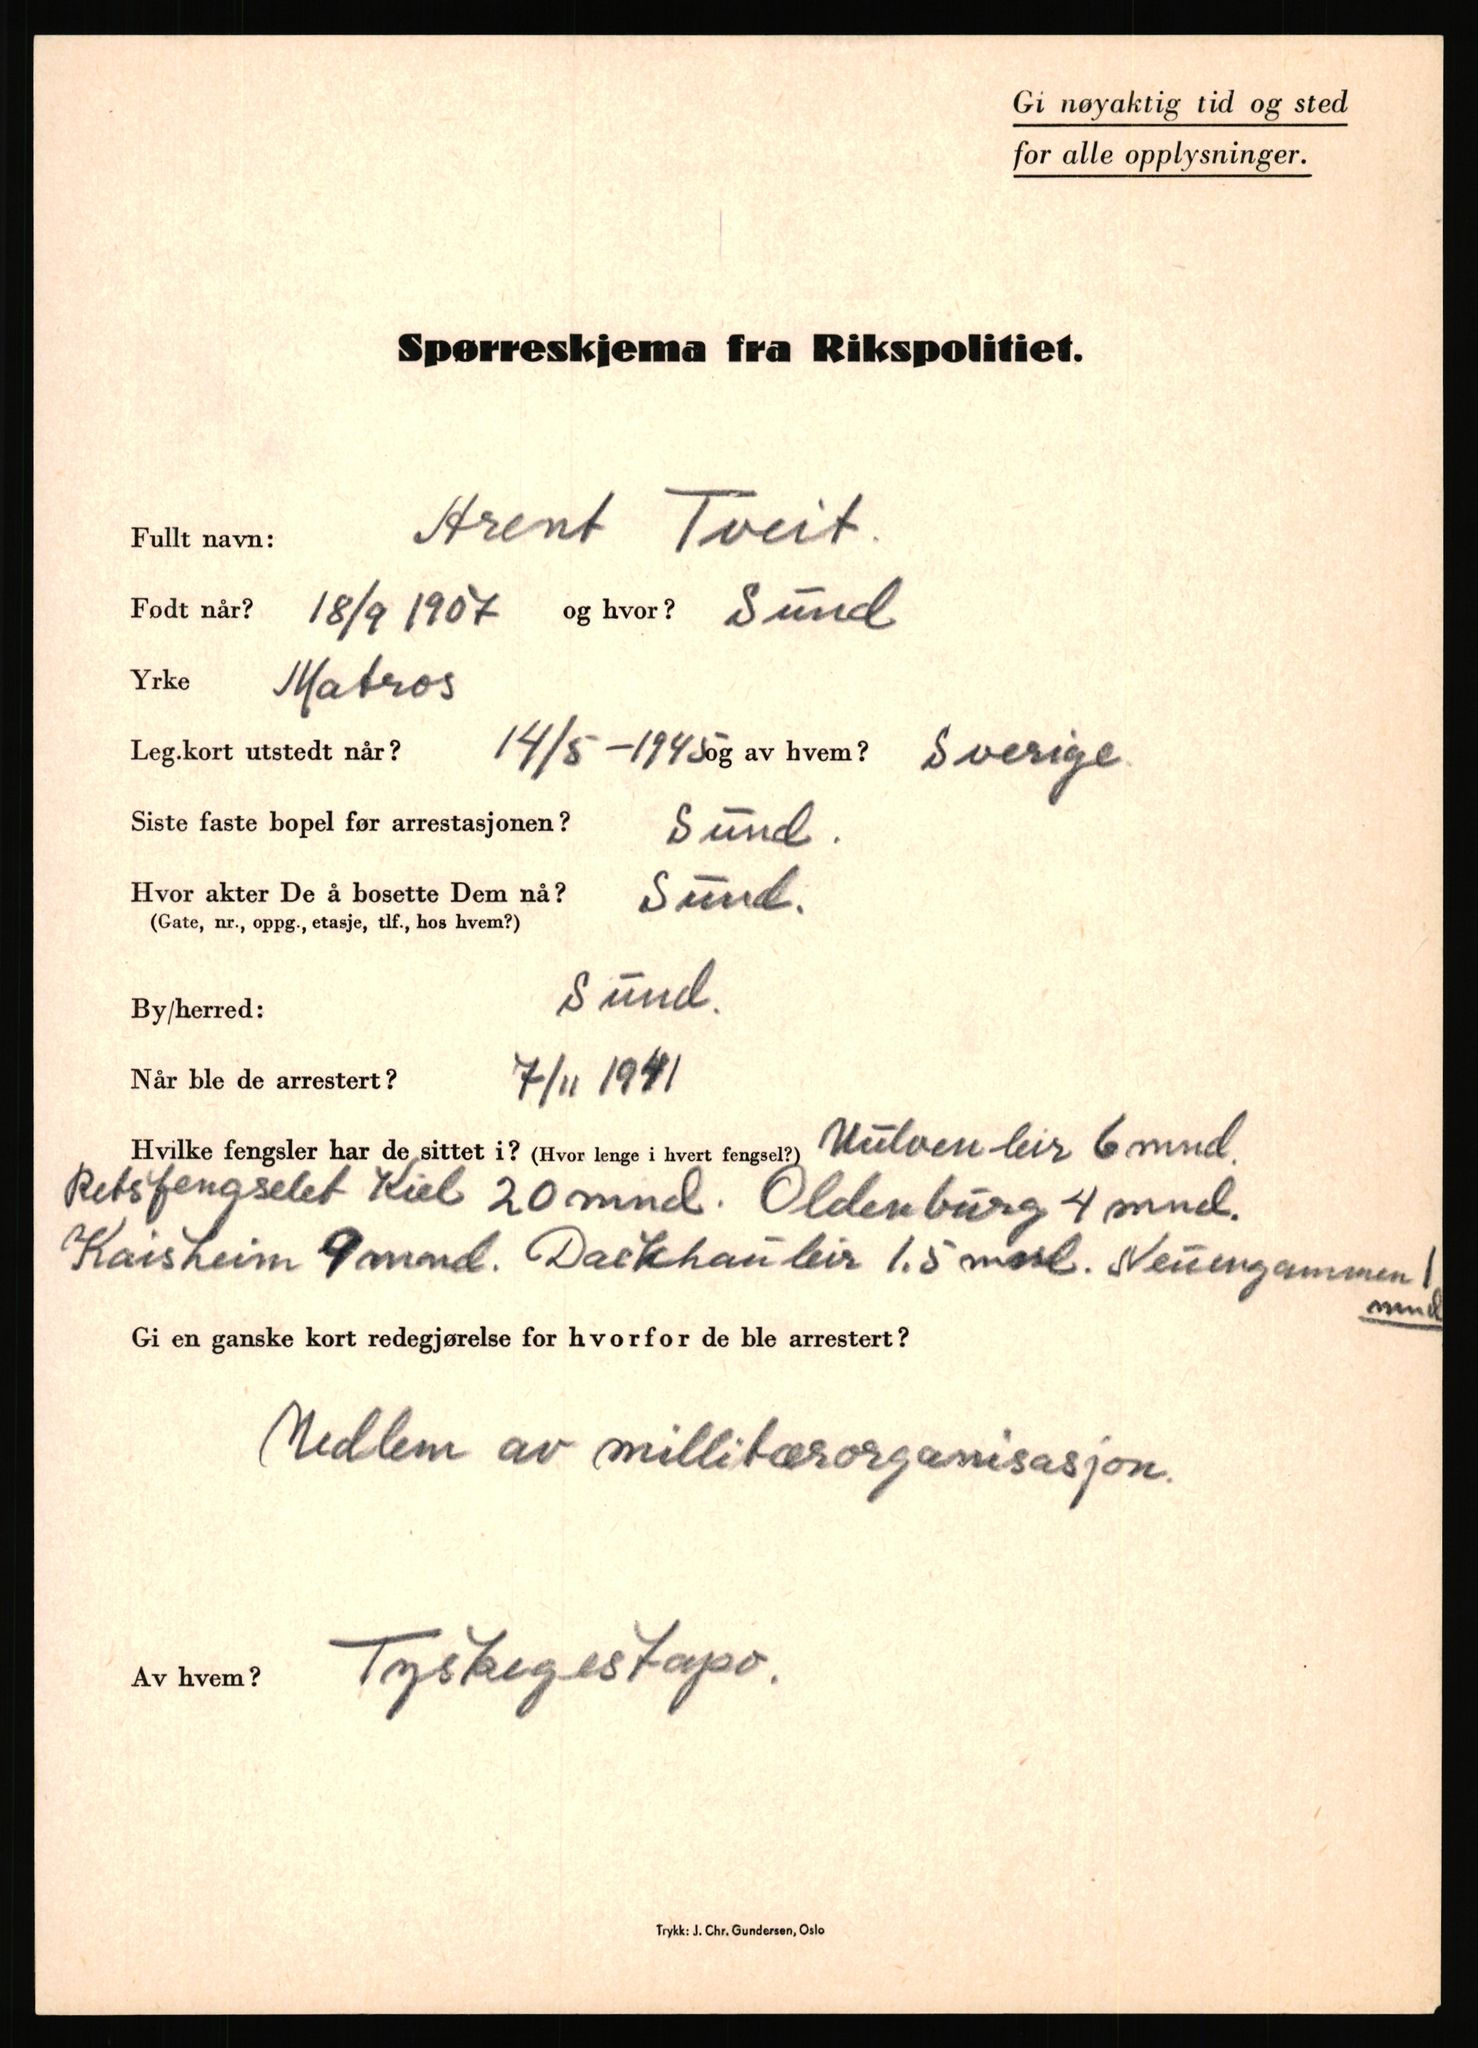 Gi nøyaktig tid og sted
for alle opplysninger.
Spørreskjema fra Rikspolitiet.
Fullt navn: Arent Tveit.
Født når? 18/9 1907 og hvor? Sund
Yrke Matros
Leg.kort utstedt når? 14/5 - 1945 og av hvem? Sverige
Siste faste bopel før arrestasjonen? Sund.
Hvor akter De å bosette Dem nå? Sund.
(Gate, nr., oppg., etasje, tlf., hos hvem?)
By/herred: Sund.
Når ble de arrestert? 7/11 1941
Hvilke fengsler har de sittet i? (Hvor lenge i hvert fengsel?) Uulven leir 6 mnd.
Retsfengselet Kiel 20 mnd. Oldenburg 4 mnd.
Kaisheim 9 mnd. Dackhau leir 1.5 mnd. Neuengammen 1
mnd
Gi en ganske kort redegjørelse for hvorfor de ble arrestert?
Medlem av millitærorganisasjon.
Av hvem? Tyskegestapo.
Trykk: J. Chr. Gundersen, Oslo